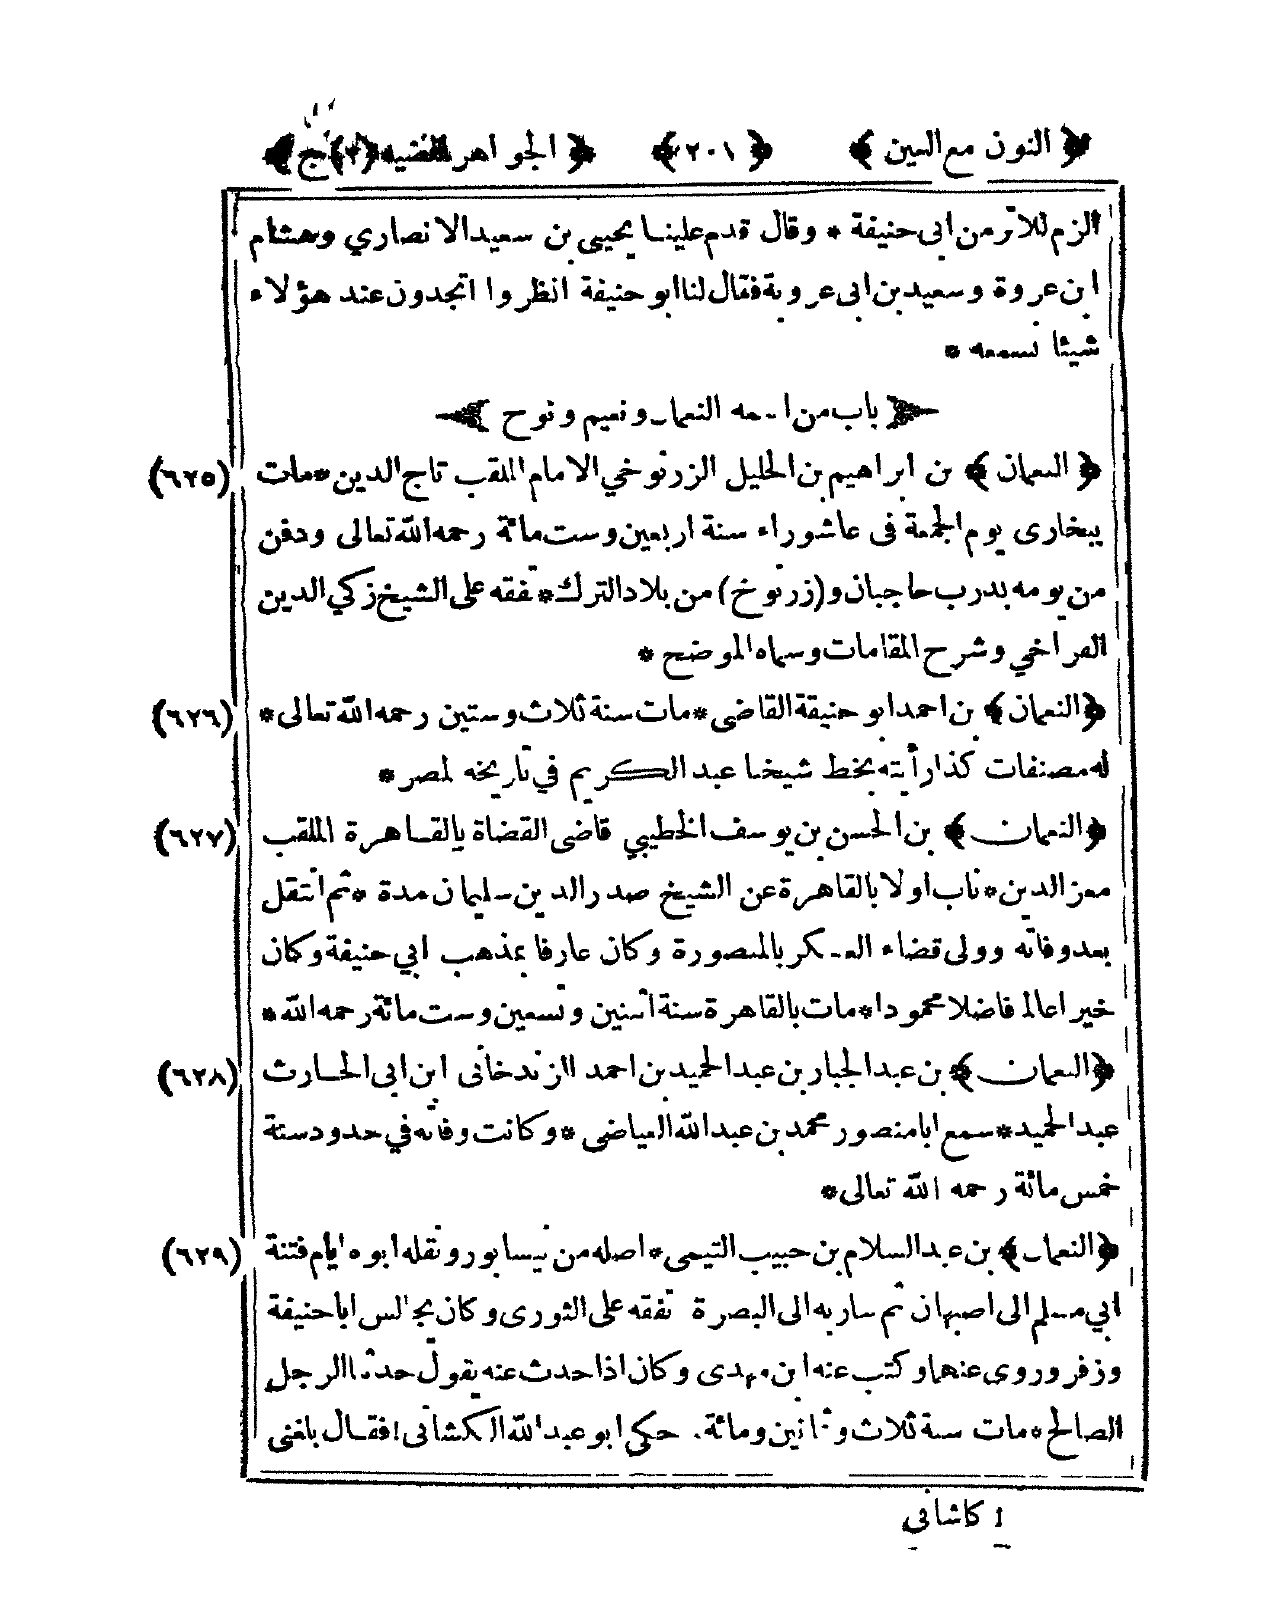 ﴿ النون مع العين ﴾ ﴿ ٢٠١ ﴾ ﴿ الجواهر المضيه (٢) ج ﴾
الزم للاثر من ابى حنيفة * وقال قدم علينا يحيى بن سعيد الانصاري وهشام
ابن عروة وسعيد بن ابى عروبة فقال لنا ابو حنيفة انظروا اتجدون عند هؤلاء
شيئا نسمعه *
باب من اسمه النعمان ونعيم ونوح
(٦٢٥) ﴿ النعمان ﴾ بن ابراهيم بن الخليل الزرنوخي الامام الملقب تاج الدين * مات
ببخارى يوم الجمعة فى عاشوراء سنة اربعين وست مائة رحمه الله تعالى ودفن
من يومه بدرب حاجبان و(زرنوخ) من بلاد الترك * تفقه على الشيخ زكي الدين
القراخي وشرح المقامات وسماه الموضح *
(٦٢٦) ﴿ النعمان ﴾ بن احمد ابو حنيفة القاضى * مات سنة ثلاث وستين رحمه الله تعالى *
له مصنفات كذا رأيته بخط شيخنا عبد الكريم في تاريخه لمصر *
(٦٢٧) ﴿ النعمان ﴾ بن الحسن بن يوسف الخطيبي قاضى القضاة بالقاهرة الملقب
معز الدين * ناب اولا بالقاهرة عن الشيخ صدر الدين سليمان مدة * ثم انتقل
بعد وفاته وولى قضاء العسكر بالمنصورة وكان عارفا بمذهب ابي حنيفة وكان
خيرا عالما فاضلا محمودا * مات بالقاهرة سنة اثنين وتسعين وست مائة رحمه الله *
(٦٢٨) ﴿ النعمان ﴾ بن عبد الجبار بن عبد الحميد بن احمد الزندخانى ابن ابى الحارث
عبد الحميد * سمع ابا منصور محمد بن عبد الله العياضى * وكانت وفاته في حدود سنة
خمس مائة رحمه الله تعالى *
(٦٢٩) ﴿ النعمان ﴾ بن عبد السلام بن حبيب التيمى * اصله من نيسابور ونقله ابوه ايام فتنة
ابي مسلم الى اصبهان ثم سار به الى البصرة تفقه على الثورى وكان يجالس ابا حنيفة
وزفر وروى عنهما وكتب عنه ابن مهدى وكان اذا حدث عنه يقول حدثنا الرجل
الصالح * مات سنة ثلاث وثمانين ومائة. حكي ابو عبد الله الكشانى ١ فقال بلغنى
١ كاشاني